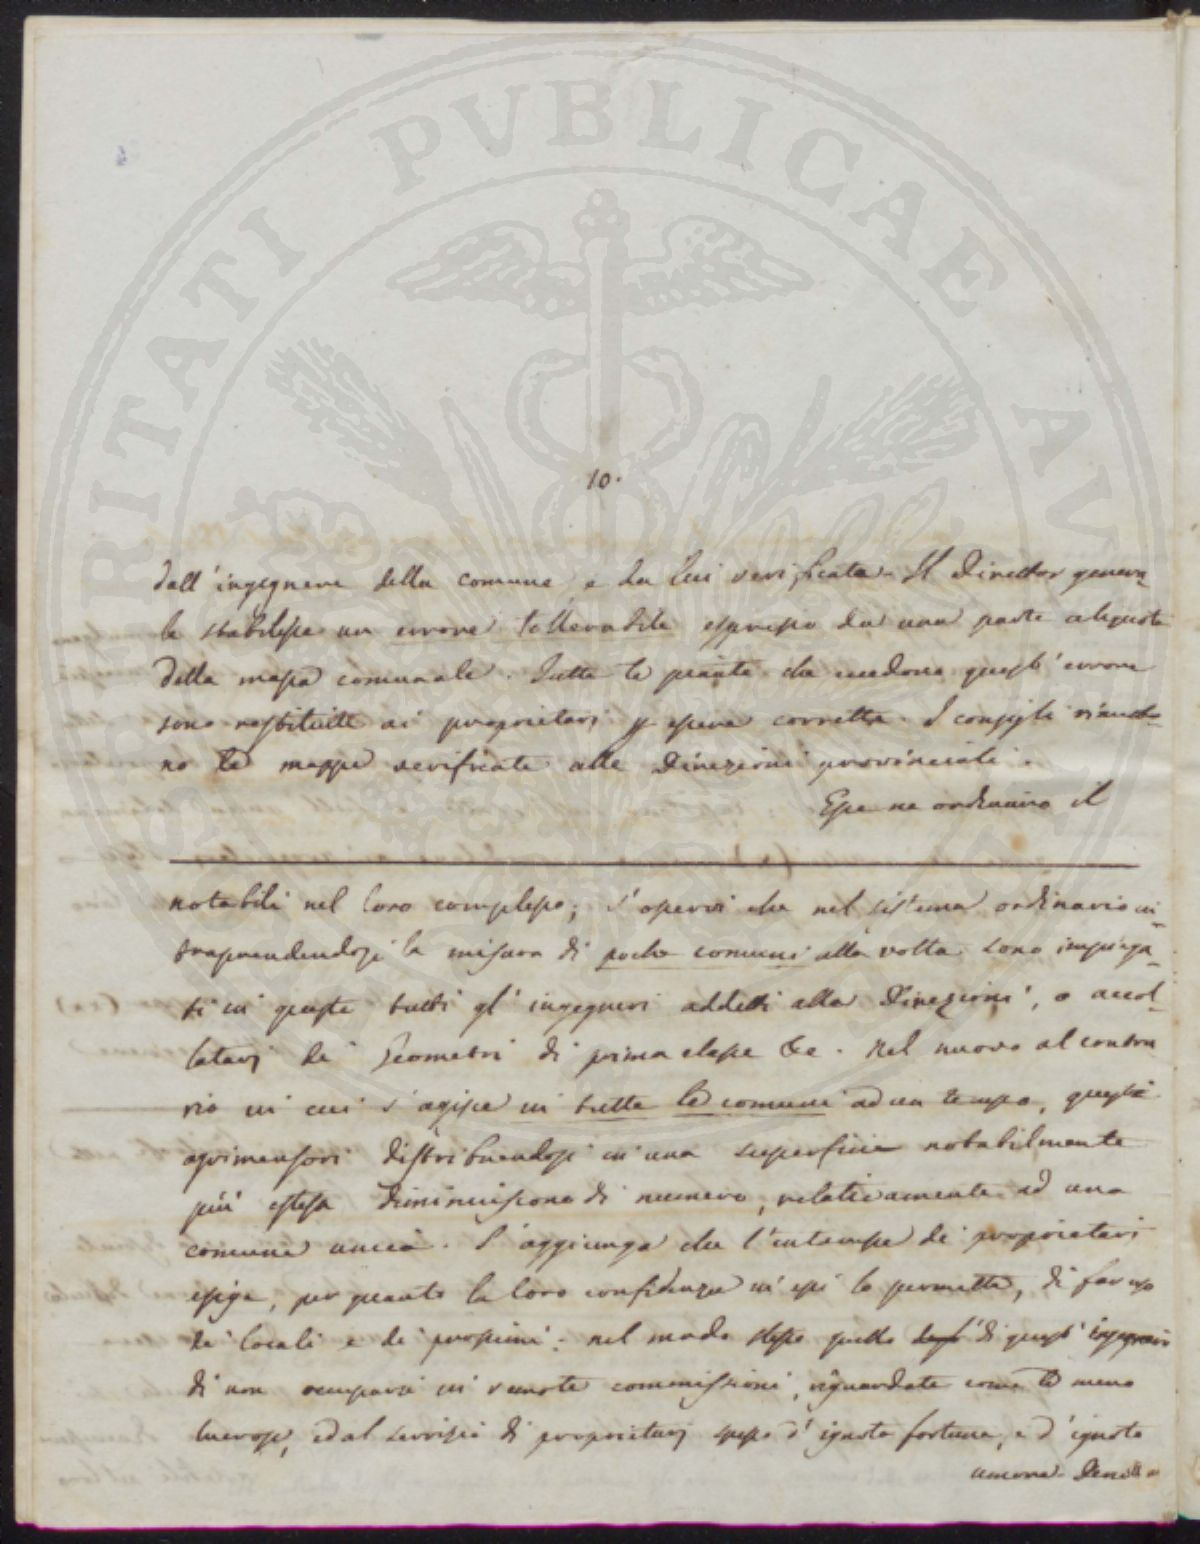 PROSPERITATI PVBLICAE AV
10.
dall'ingegnere della comune e da lui verificata. Il Director genera-
le stabilisce un errore tollerabile espresso da una parte aliquota
della mappa comunale. Tutte le piante che eccedono quest'errore
sono restituite ai proprietarj p essere corrette. I consigli rimetto-
no le mappe verificate alle Direzioni provinciali.
Esse ne ordinano il
notabili nel loro complesso; s'osservi che nel sistema ordinario in-
traprendendosi la misura di poche comuni alla volta sono impiega-
ti in queste tutti gl'ingegneri addetti alla Direzioni, o accol-
latarj de' Geometri di prima classe &c. Nel nuovo al contra
rio in cui s'agisce in tutte le comuni ad un tempo, questi
agrimensori distribuendosi in una superficie notabilmente
più estesa diminuiscono di numero, relativamente ad una
comune unica. S'aggiunga che l'interesse de' proprietari
esige, per quanto la loro confidenza in essi lo permette, di far uso
de' locali e de' prossimi: nel modo stesso quello di quest' ingegneri
di non occuparsi in remote commissioni, riguardate come le meno
lucrose, ed al servizio di proprietarj spesso d'ignota fortuna, e d'ignota
ancora